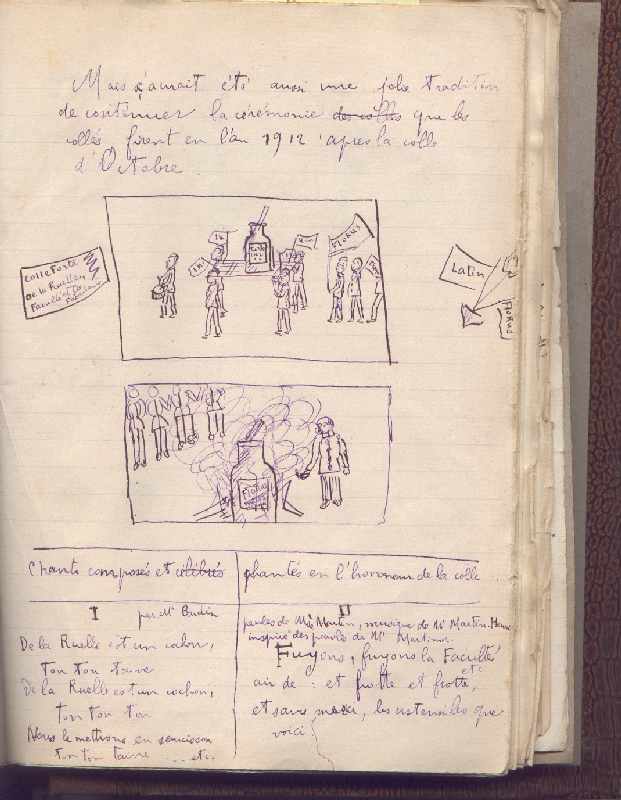 Mais ç'aurait été aussi une jolie tradition
de continuer la cérémonie des colles que les
collés firent en l'an 1912 après la colle
d'Octobre
Colle Forte
de la Ruelle
Faculté
FLORUS
Latin
FLORUS
Chants composés et célébrés chantés en l'honneur de la colle
I par Mr Baudin
De la Ruelle est un cochon,
ton ton taine
De la Ruelle est un cochon,
ton ton ton
Nous le mettrons en saucisson
ton ton taine ... etc.
II
paroles de Mr Martin, musique de Mr Martin-
inspiré des paroles de Mr Martinon
Fuyons, fuyons la Faculté
etc
air de : et frotte et frotte,
et sans les ustensiles que
voici